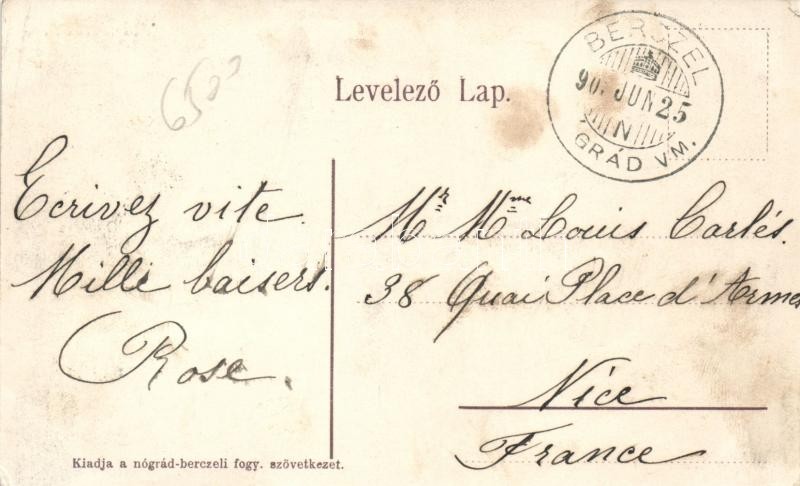 6500
Levelező Lap.
BERCZEL
90. JUN 25
N
GRÁD VM.
Ecrivez vite.
Mille baisers.
Rose.
Mr Mme Louis Carlés.
38 Quai Place d'Armes
Nice
France
Kiadja a nógrád-berczeli fogy. szövetkezet.